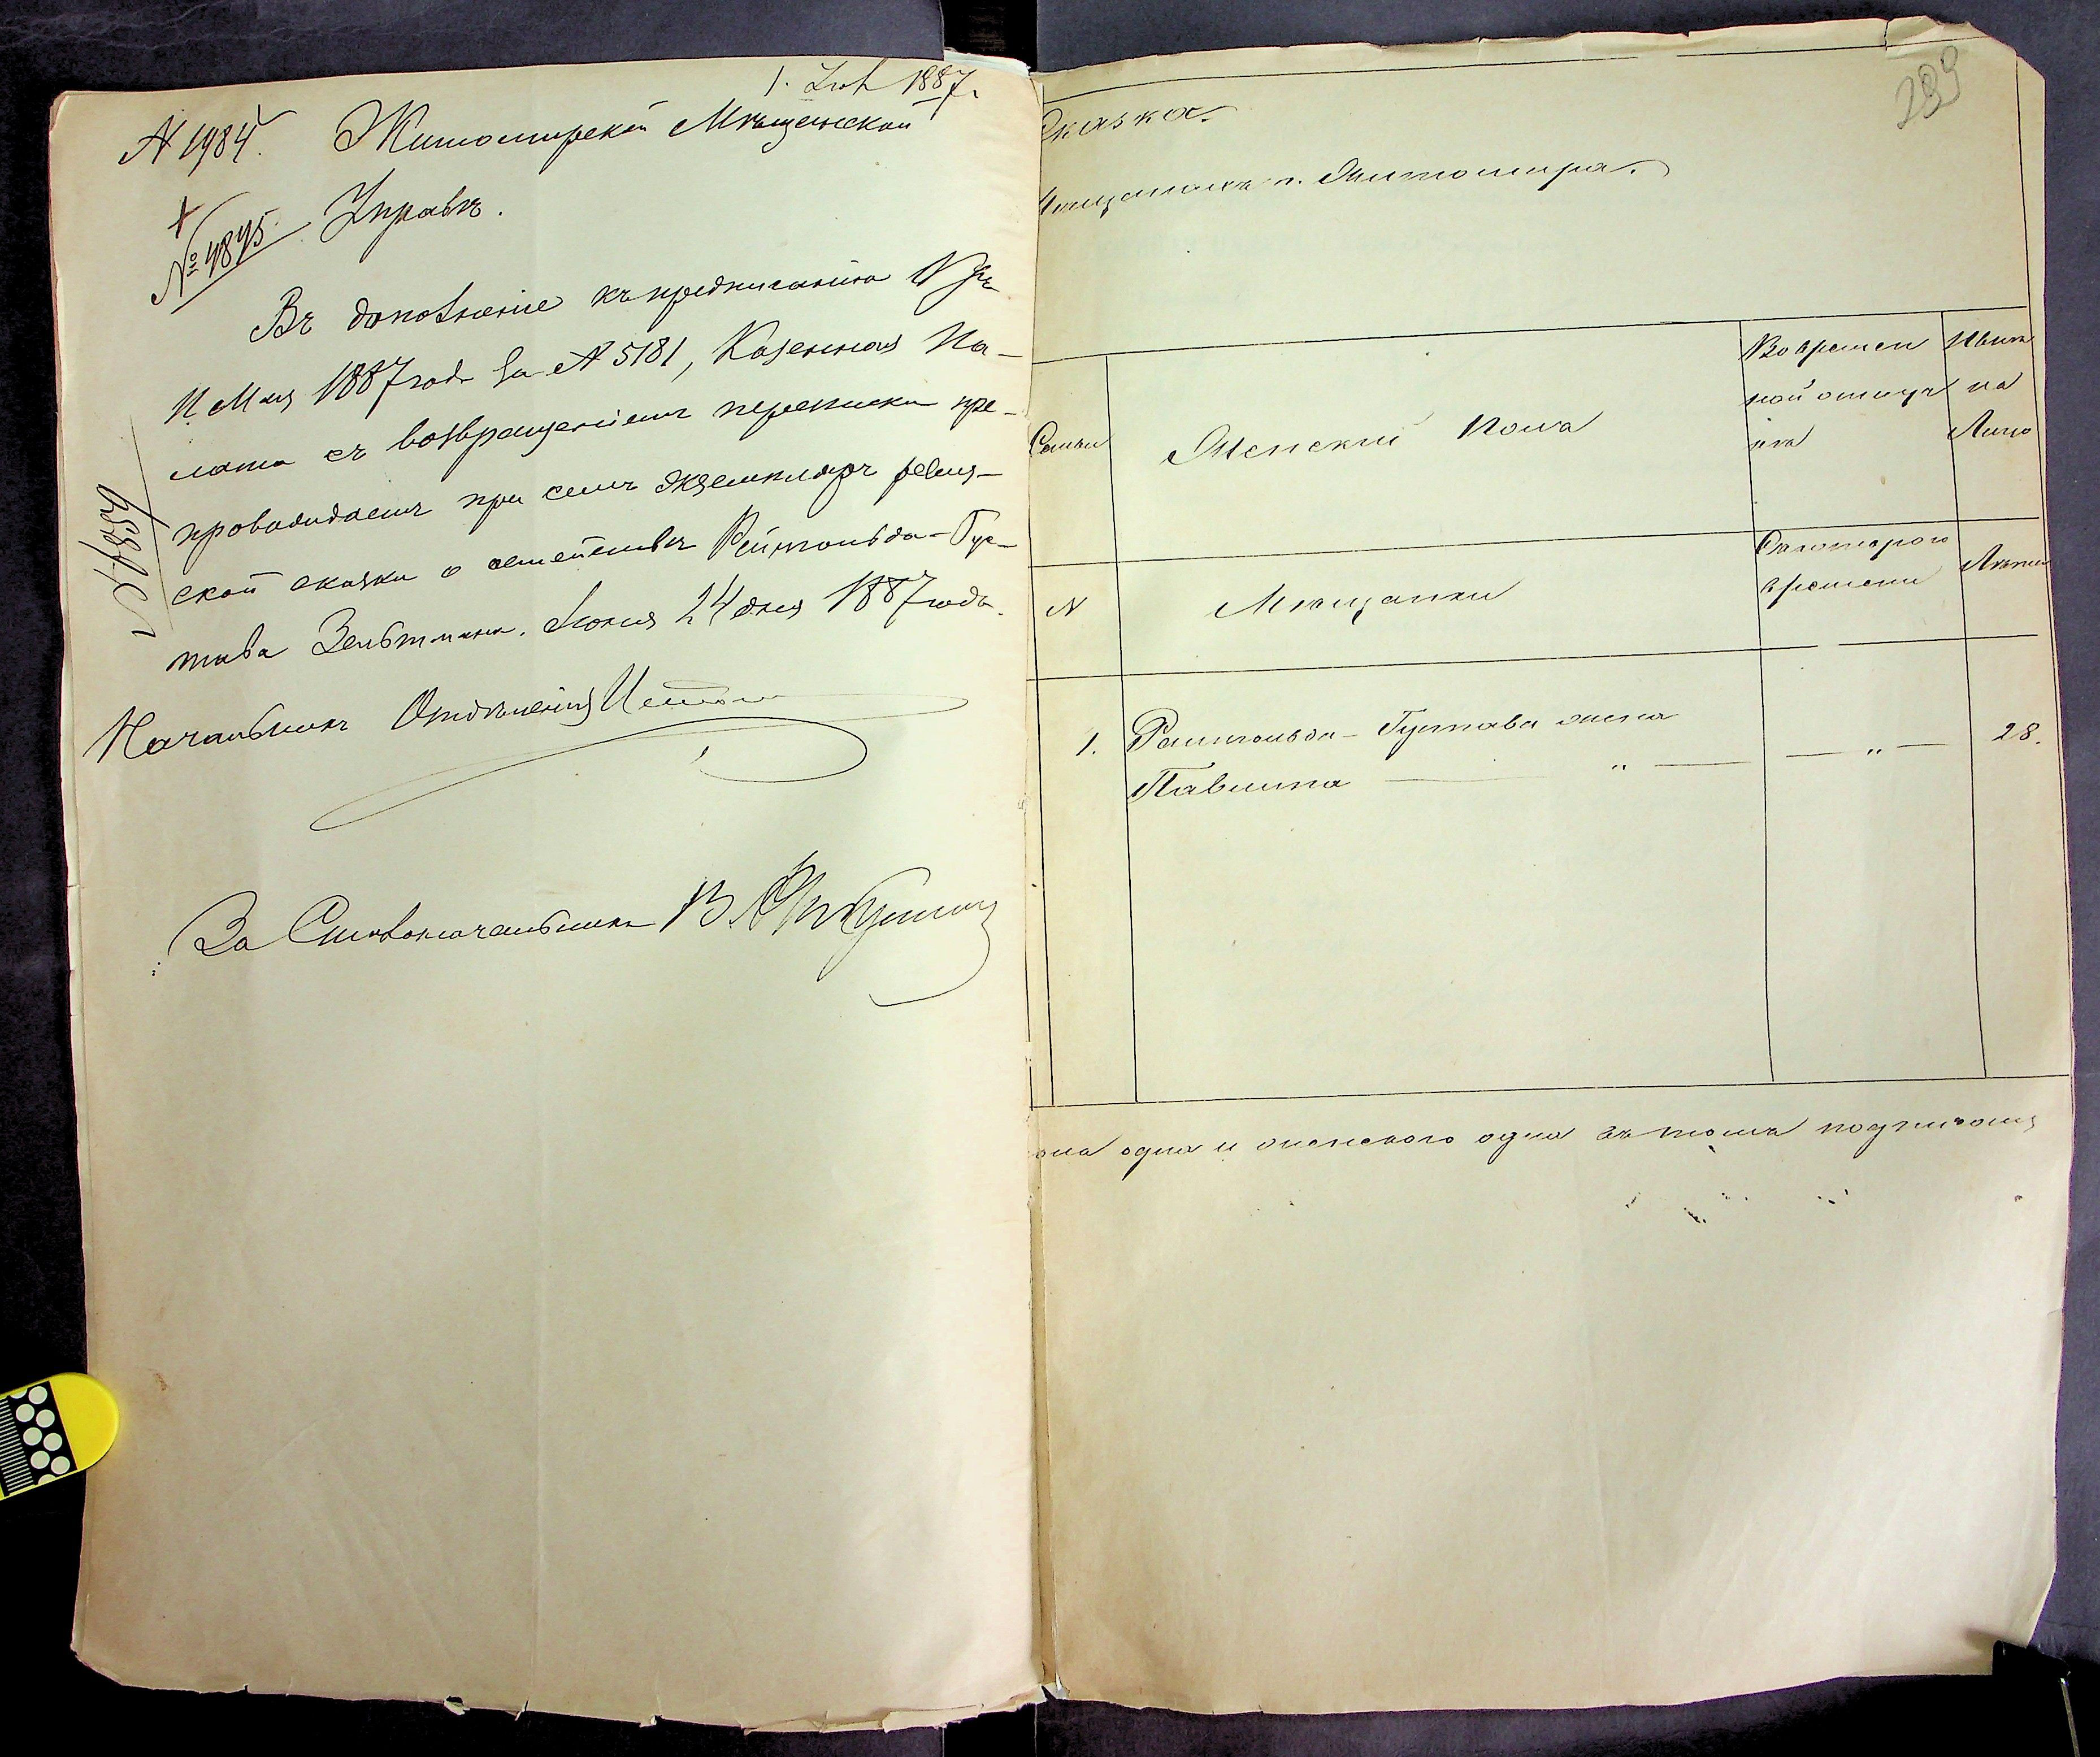 1. Іюл 1887 г.
№ 1984. Житомирской Мѣщанской
№ 4895. Управѣ.
Въ дополненіе къ предписанію
11 Мая 1887 года за № 5181, Казенная Па-
лата съ возвращеніемъ переписки пре-
провождаетъ при семъ экземпляръ ревиз-
ской сказки о семействѣ Рейнгольда-Гус-
тава Зельтмана. Іюня 24 дня 1887 года.
Начальникъ Отдѣленія
За Столоначальника В.
289
Сказка
Мѣщанахъ г. Житомира.
Семьи
Женскій Пола
Во времен
ной отлуч
кѣ
Нынѣ
на
Лицо
N
Мѣщанки
Съ котораго
времени
Лѣта
1. Рейнгольда-Густава жена
Павлина — " — — " — 28.
одна и женскаго одна въ томъ подписомъ